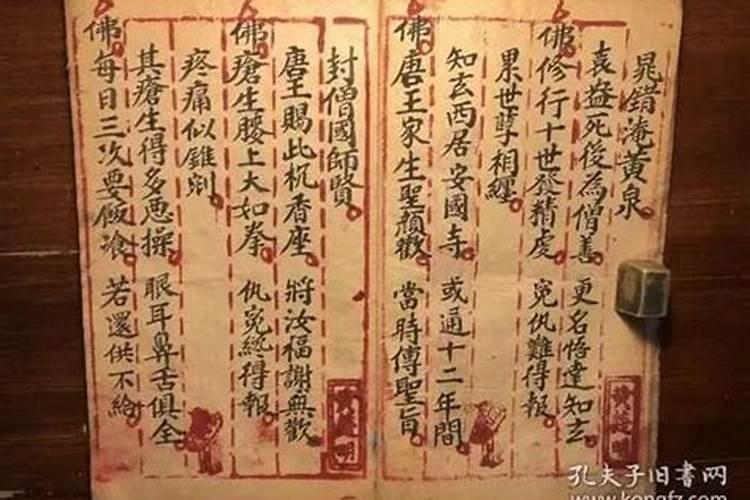 晁錯淹黄泉
袁益死後為僧善 更名悟達知玄
佛修行十世發精虔 寃仇難得報
累世孽相纏
知玄西居安國寺 或通十二年間
佛唐王家生聖顏歡 當時傳聖旨
封僧國師賢
唐王賜此杌香座 將汝福謝無歡
佛瘡生腰上大如拳 仇寃終得報
疼痛似錐剜
其瘡生得多悪操 眼耳鼻舌俱全
佛每日三次要飯飡 若還供不給
孔夫子旧書网